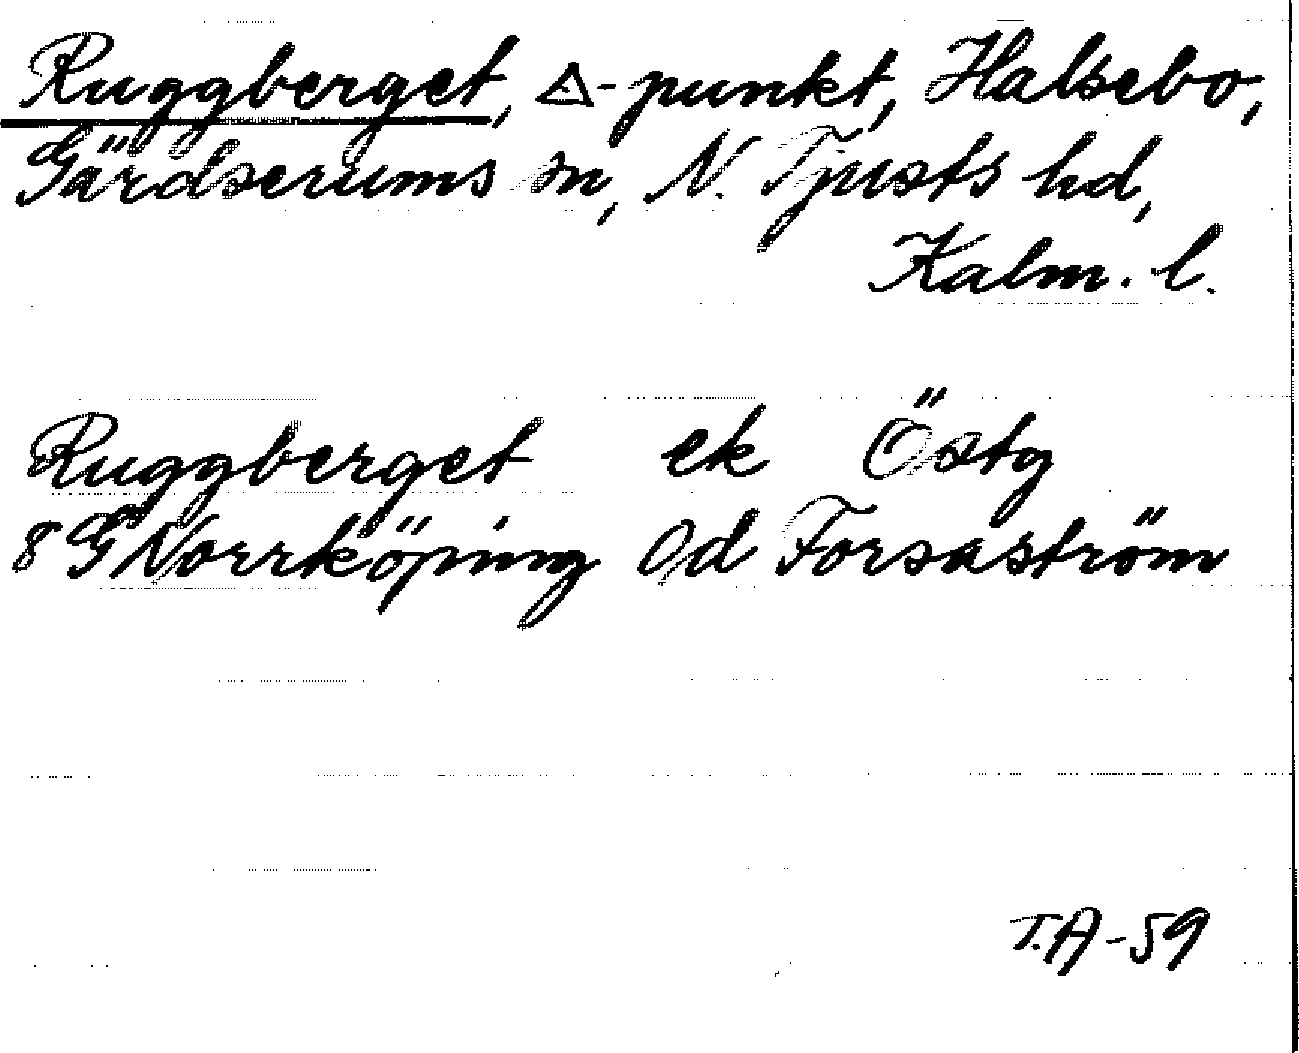 Ruggberget, △-punkt, Halsebo,
Gärdserums sn, N. Tjusts hd,
Kalm. l.
Ruggberget ek Östg
8 G Norrköping 0d Forsaström
T.A-59